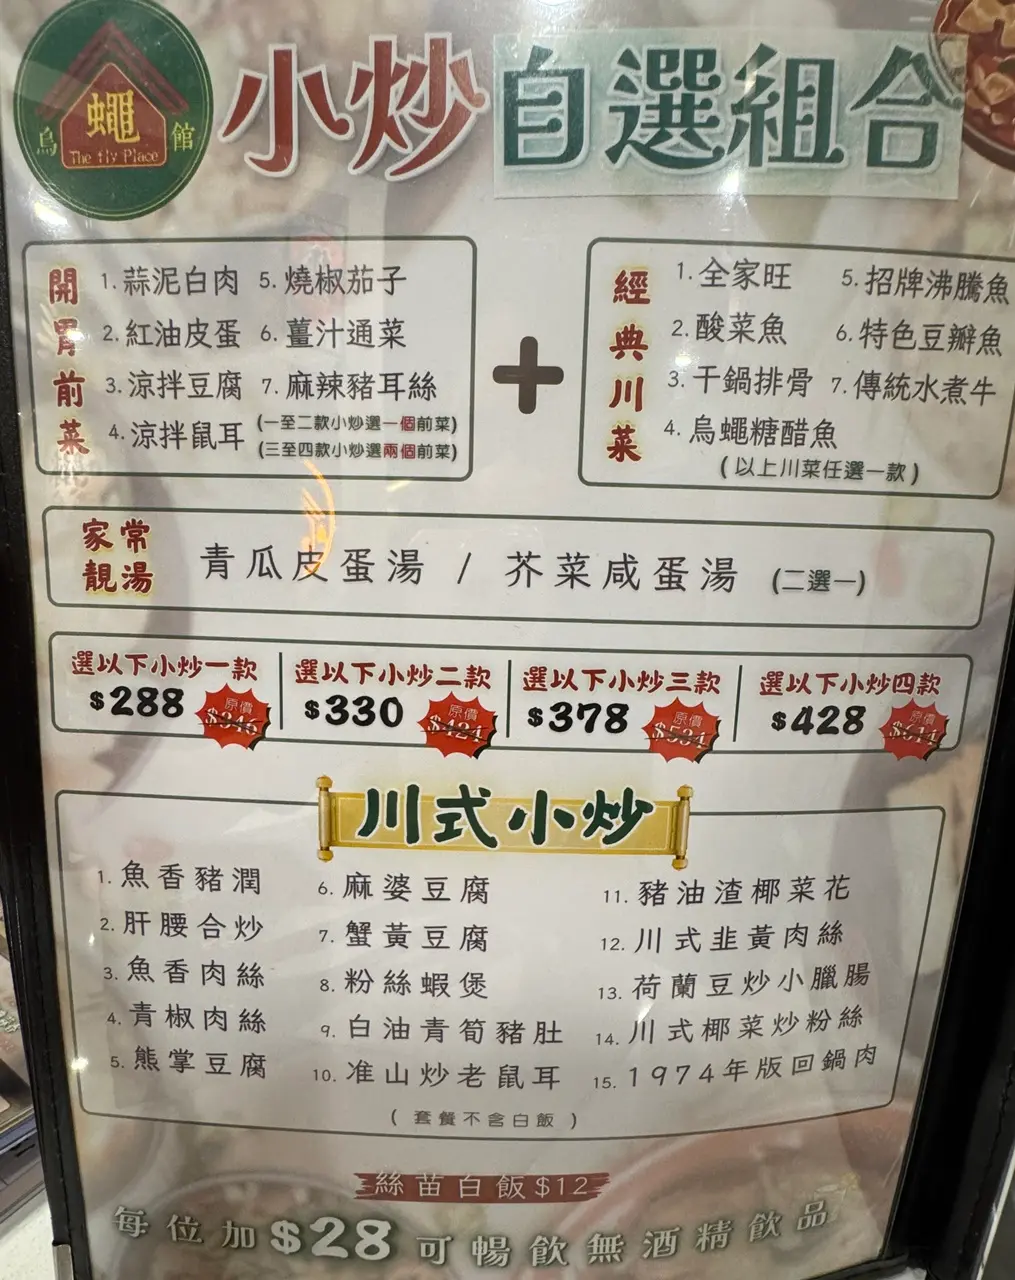 烏蠅館
The fly Place
小炒自選組合
開胃前菜
1. 蒜泥白肉
2. 紅油皮蛋
3. 涼拌豆腐
4. 涼拌鼠耳
5. 燒椒茄子
6. 薑汁通菜
7. 麻辣豬耳絲
(一至二款小炒選一個前菜)
(三至四款小炒選兩個前菜)
+
經典川菜
1. 全家旺
2. 酸菜魚
3. 干鍋排骨
4. 烏蠅糖醋魚
5. 招牌沸騰魚
6. 特色豆瓣魚
7. 傳統水煮牛
(以上川菜任選一款)
家常靚湯
青瓜皮蛋湯 / 芥菜咸蛋湯 (二選一)
選以下小炒一款
$288
原價
$346
選以下小炒二款
$330
原價
$424
選以下小炒三款
$378
原價
$534
選以下小炒四款
$428
原價
$614
川式小炒
1. 魚香豬潤
2. 肝腰合炒
3. 魚香肉絲
4. 青椒肉絲
5. 熊掌豆腐
6. 麻婆豆腐
7. 蟹黃豆腐
8. 粉絲蝦煲
9. 白油青筍豬肚
10. 准山炒老鼠耳
11. 豬油渣椰菜花
12. 川式韭黃肉絲
13. 荷蘭豆炒小臘腸
14. 川式椰菜炒粉絲
15. 1974年版回鍋肉
(套餐不含白飯)
絲苗白飯$12
每位加$28可暢飲無酒精飲品